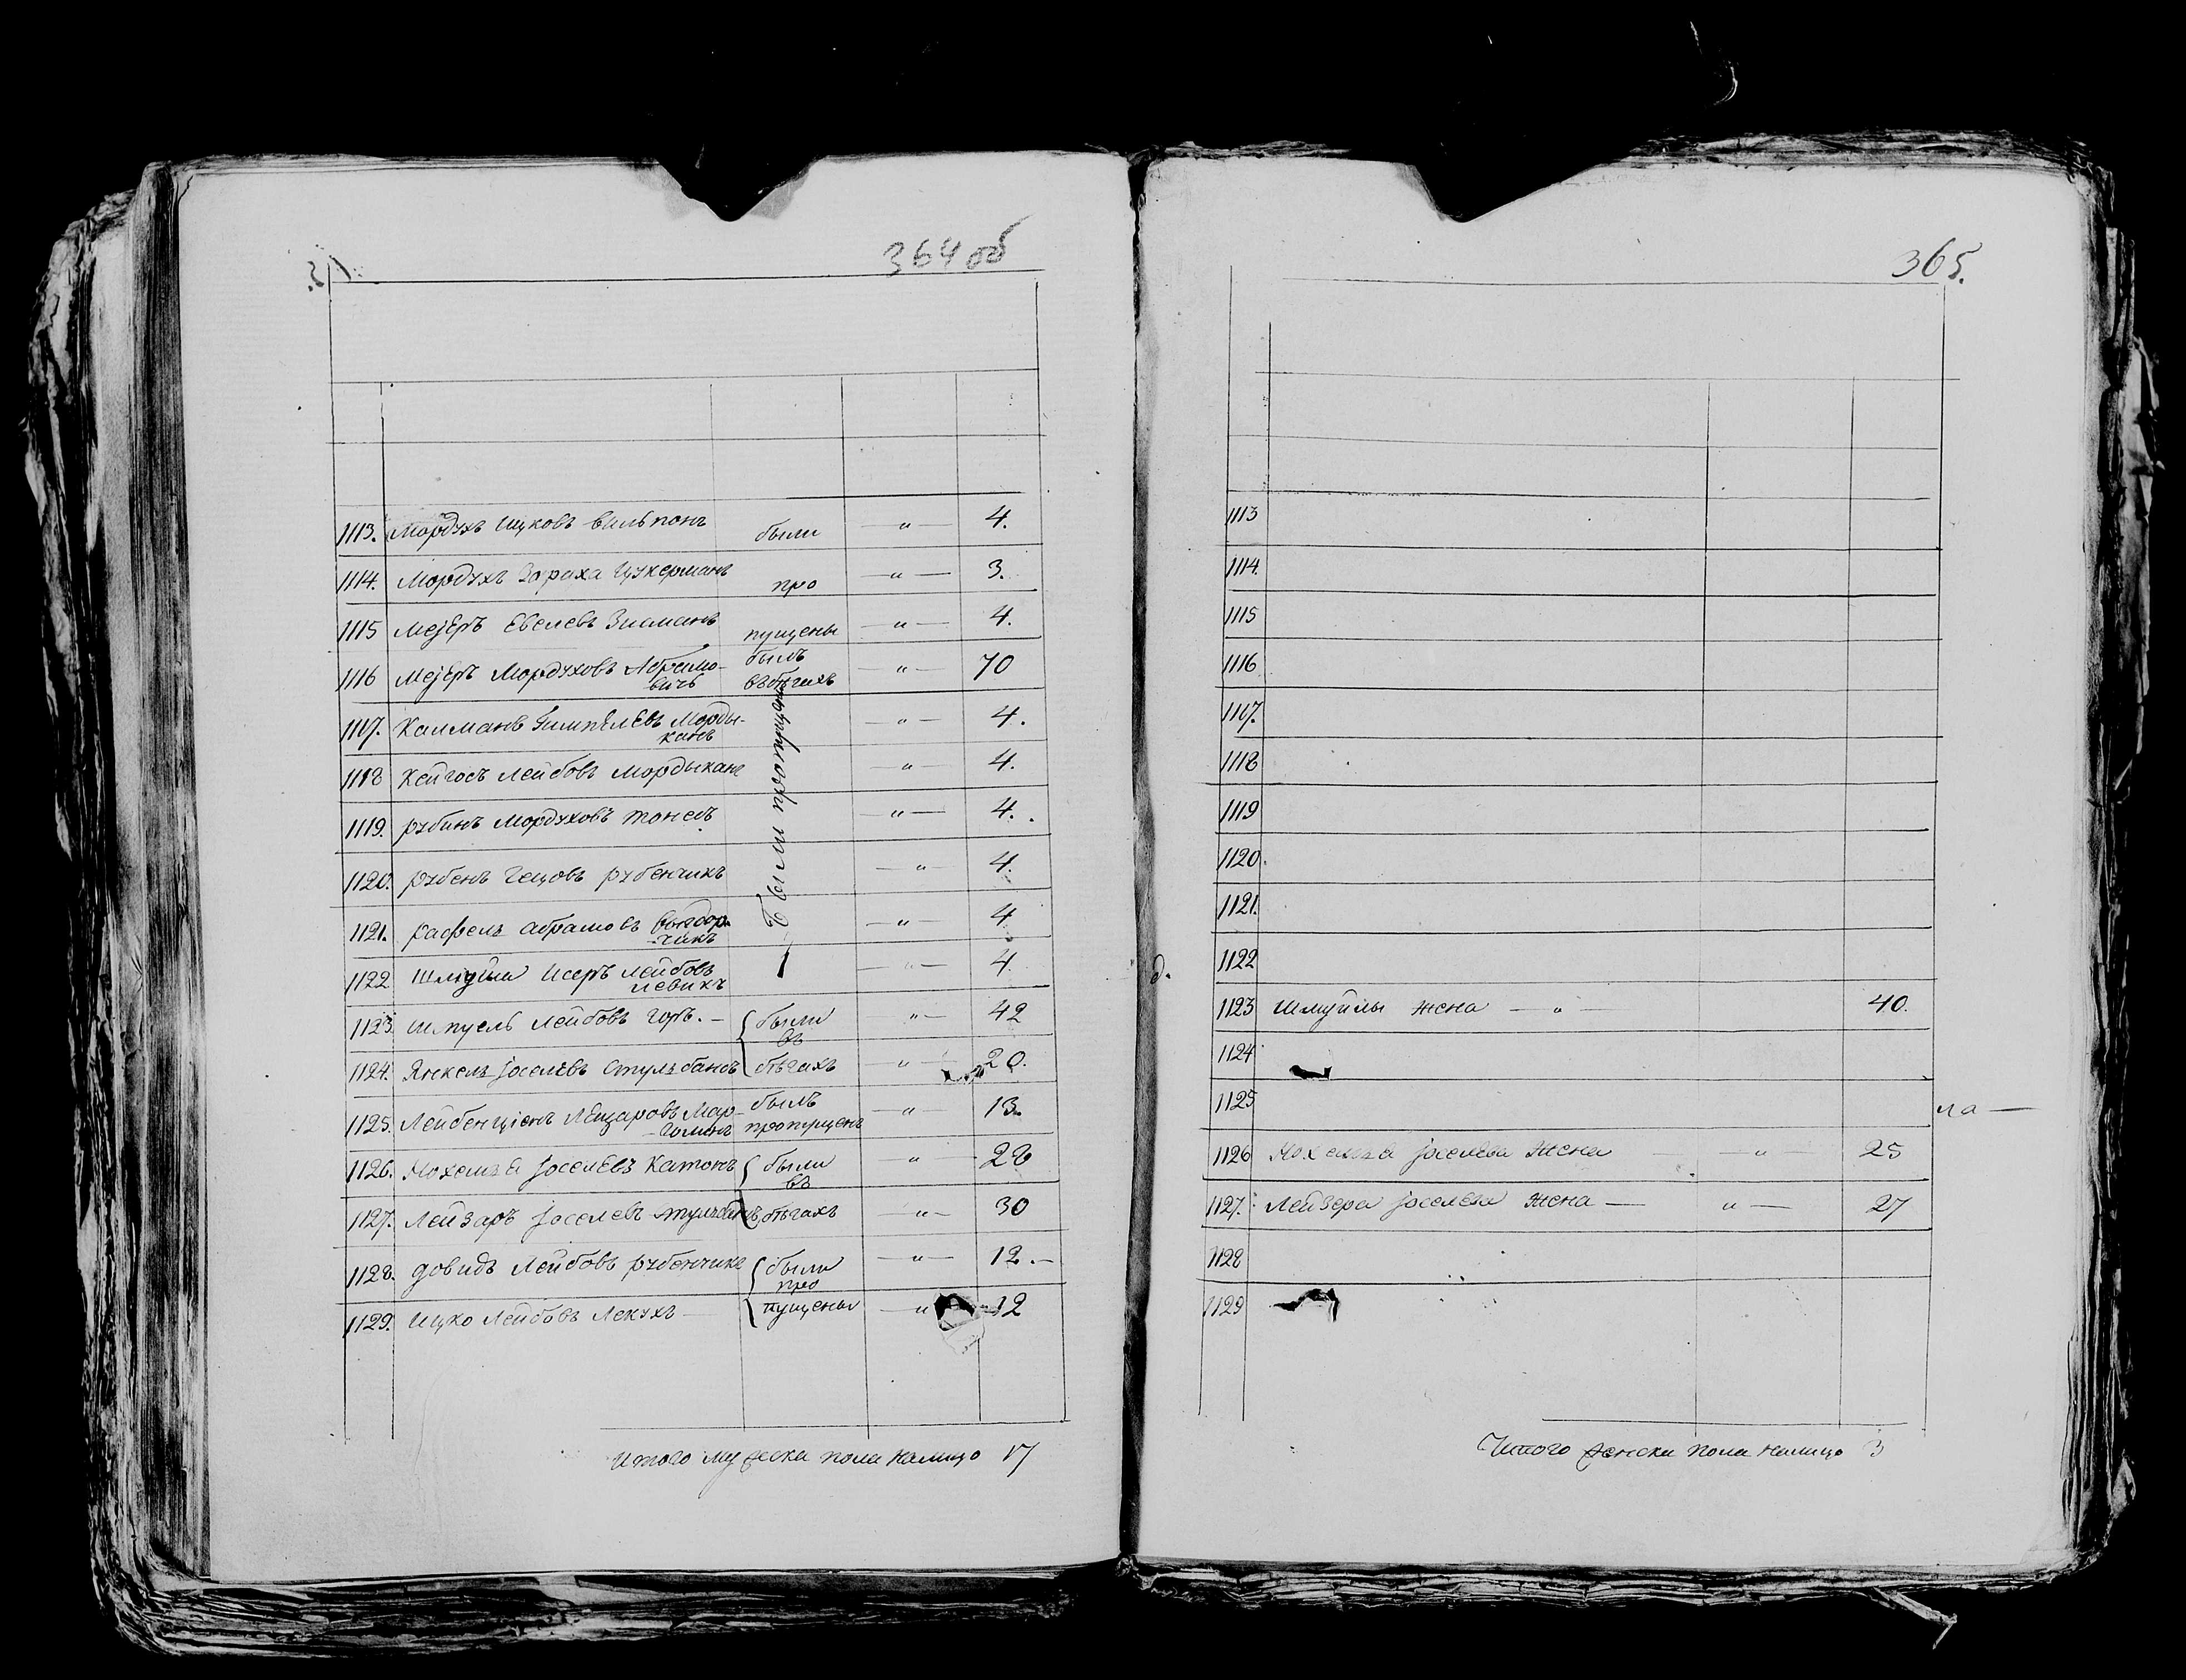 364 об
1113. Мордухъ Ицковъ Вильпонъ были " 4.
1114. Мордухъ Зораха Цукерманъ про " 3.
1115 Меjеръ Евелевъ Зисманъ пущены " 4.
1116 Меjеръ Мордуховъ Абрамо- былъ " 70
вичъ въ бѣгахъ
1117. Калманъ Гимпелевъ Морды- " 4.
канъ
Были пропущены
1118 Лейбовъ Мордыканъ " 4.
1119. Рубинъ Мордуховъ " 4.
1120. Рубенъ Гецовъ Рубенчикъ " 4.
1121. Рафель Абрамовъ " 4
чикъ
1122 Шлиома Исеръ Лейбовъ " 4.
Левикъ
1123. Шмуель Лейбовъ были " 42
въ
1124. Янкель Jоселевъ бѣгахъ " 20.
1125. Лейбенцiонъ Лейзаровъ Мар- былъ " 13.
голинъ пропущенъ
1126. Jоселевъ Катонъ были " 28
въ
1127. Лейзаръ Jоселевъ бѣгахъ " 30
1128. Довидъ Лейбовъ Рубенчикъ были " 12.
про
1129. Ицко Лейбовъ Лекухъ пущены " 12
Итого мужеска пола налицо 17
365.
1113
1114.
1115
1116
1117.
1118
1119
1120.
1121.
1122
д.
1123 Шмуйлы жена " 40.
1124
1125
ла
1126 Jоселева жена " 25
1127. Лейзера Jоселева жена " 27
1128
1129
Итого женска пола налицо 3